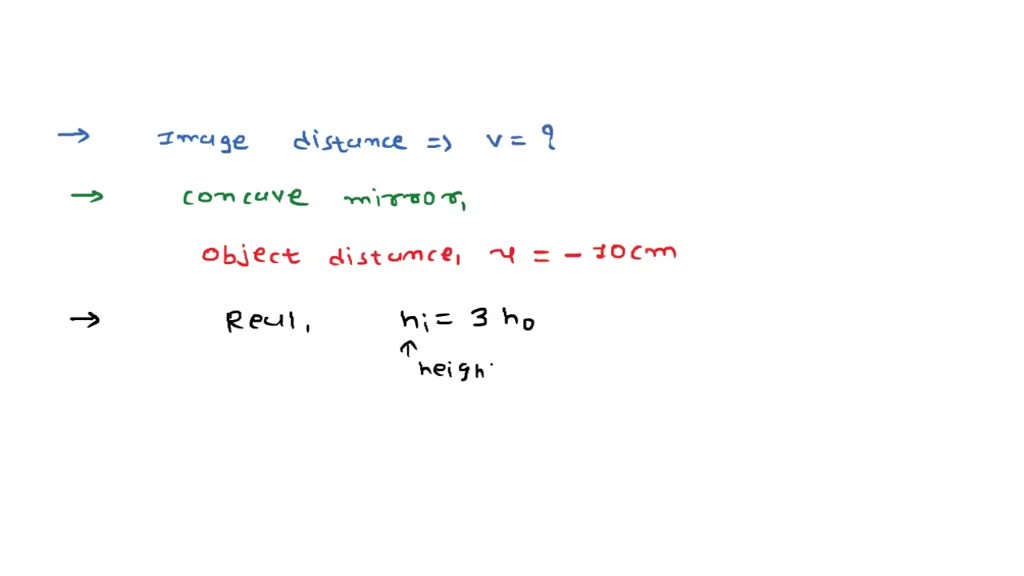 → Image distance => v = ?
→ concave mirror,
object distance, u = - 10cm
→ Real, hi = 3 ho
↑
heigh